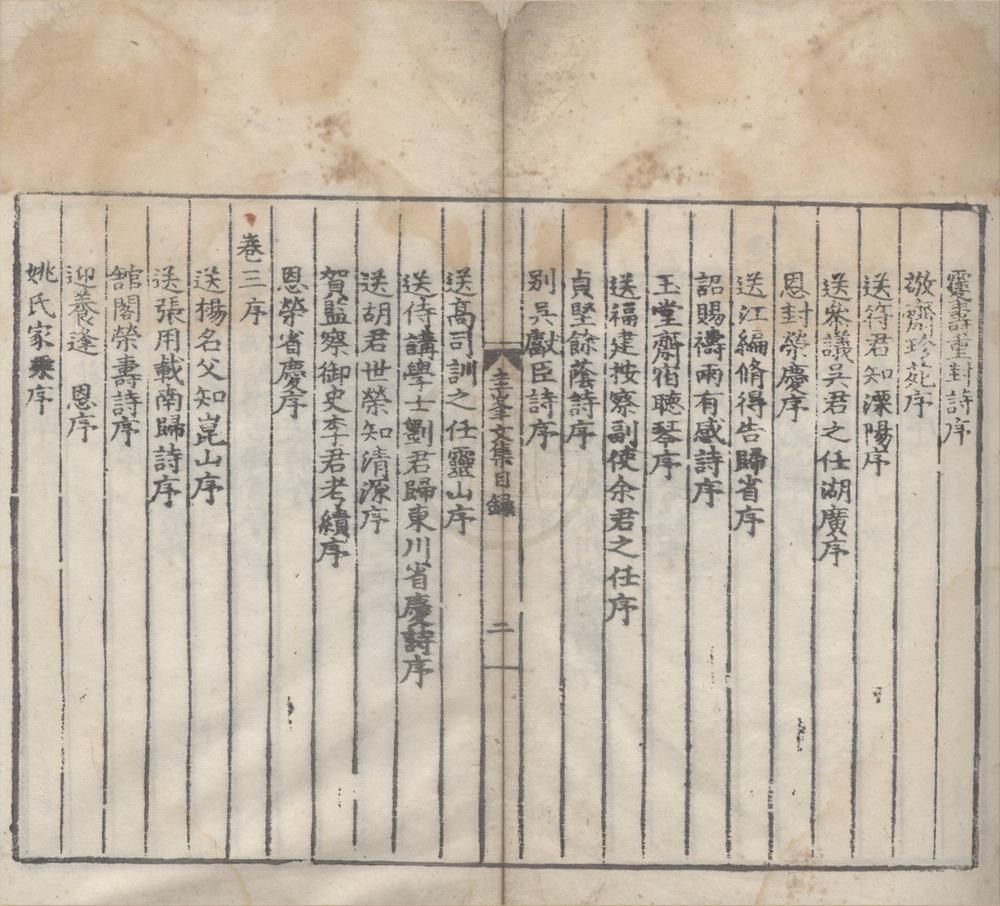 壽重封詩序
敬齋珍菀序
送符君知溧陽序
送叅議吳君之任湖廣序
恩封榮慶序
送江編脩得告歸省序
詔賜禱雨有感詩序
玉堂齋宿聽琴序
送福建按察副使余君之任序
貞堅餘蔭詩序
别吳獻臣詩序
圭峯文集目録
二
送髙司訓之任靈山序
送侍講學士劉君歸東川省慶詩序
送胡君世榮知清源序
賀監察御史李君考績序
恩榮省慶序
卷三序
送楊名父知崑山序
送張用載南歸詩序
舘閣榮壽詩序
迎養逢 恩序
姚氏家乗序